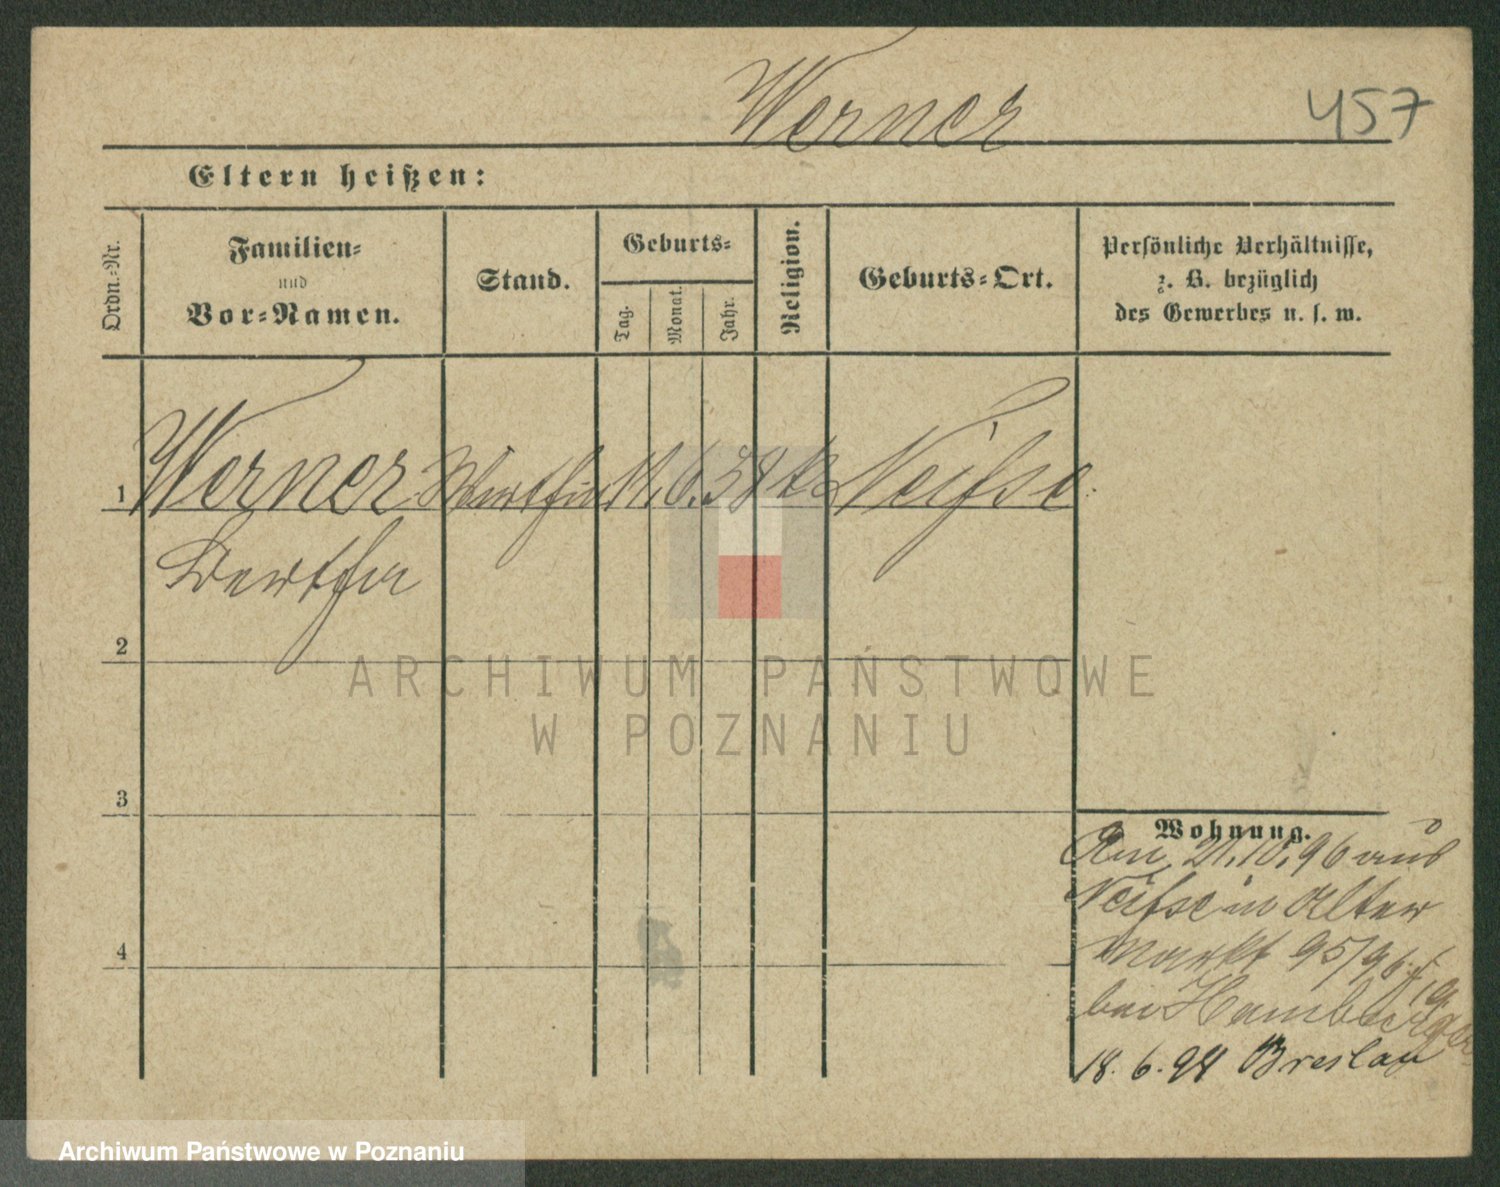 Werner 457
Eltern heißen:
Ordn.-Nr.
Familien-
und
Vor-Namen.
Stand.
Geburts-
Tag.
Monat.
Jahr.
Religion.
Geburts-Ort.
Persönliche Verhältnisse,
z. B. bezüglich
des Gewerbes u. s. w.
1 Werner Wirthin 11. 6. 38 k. Neisse
Bertha
2
3
4
Wohnung.
Am 21.10.96 aus
Neisse in Alter
Markt 95/96
bei Hamburger
18. 6. 97 Breslau
ARCHIWUM PAŃSTWOWE
W POZNANIU
Archiwum Państwowe w Poznaniu